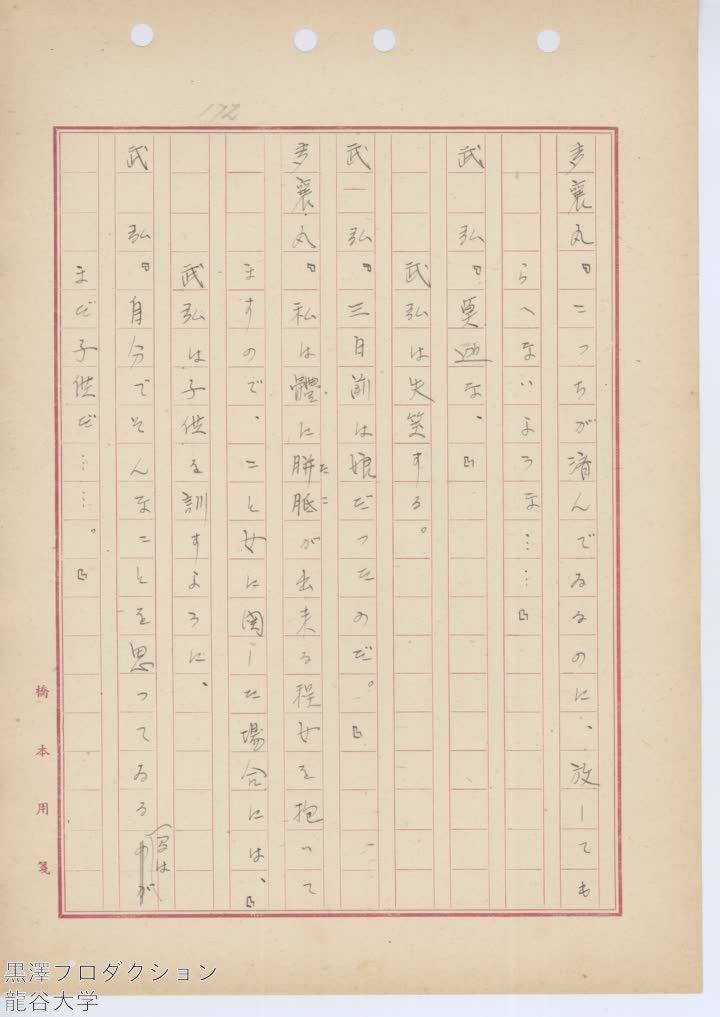 172
多襄丸『こっちが済んでゐるのに、放しても
らへないような……』
武　弘『莫迦な、』
武弘は失笑する。
武　弘『三日前は娘だったのだ。』
多襄丸『私は體に胼胝が出来る程女を抱いて
たこ
ますので、こと女に関した場合には、』
武弘は子供を訓すように、
武　弘『自分でそんなことを思ってゐる
まだ子供だ……。』
橋本用箋
黒澤プロダクション
龍谷大学